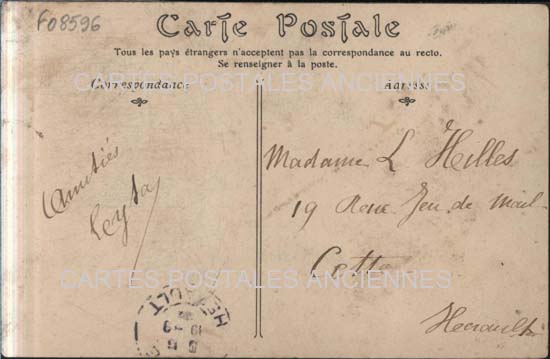 F08596
Carte Postale
Tous les pays étrangers n'acceptent pas la correspondance au recto.
Se renseigner à la poste.
CARTES POSTALES ANCIENNES
Correspondance
Adresse
Amitiés
Madame L Hilles
19 Rue Jeu de Mail
Cette
CARTES POSTALES ANCIENNES
Herault
HERAULT